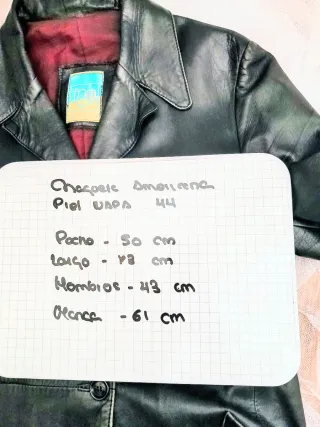 Chaqueta Americana
Piel NAPA 44
Pecho - 50 cm
Largo - 73 cm
Hombros - 43 cm
Manga - 61 cm